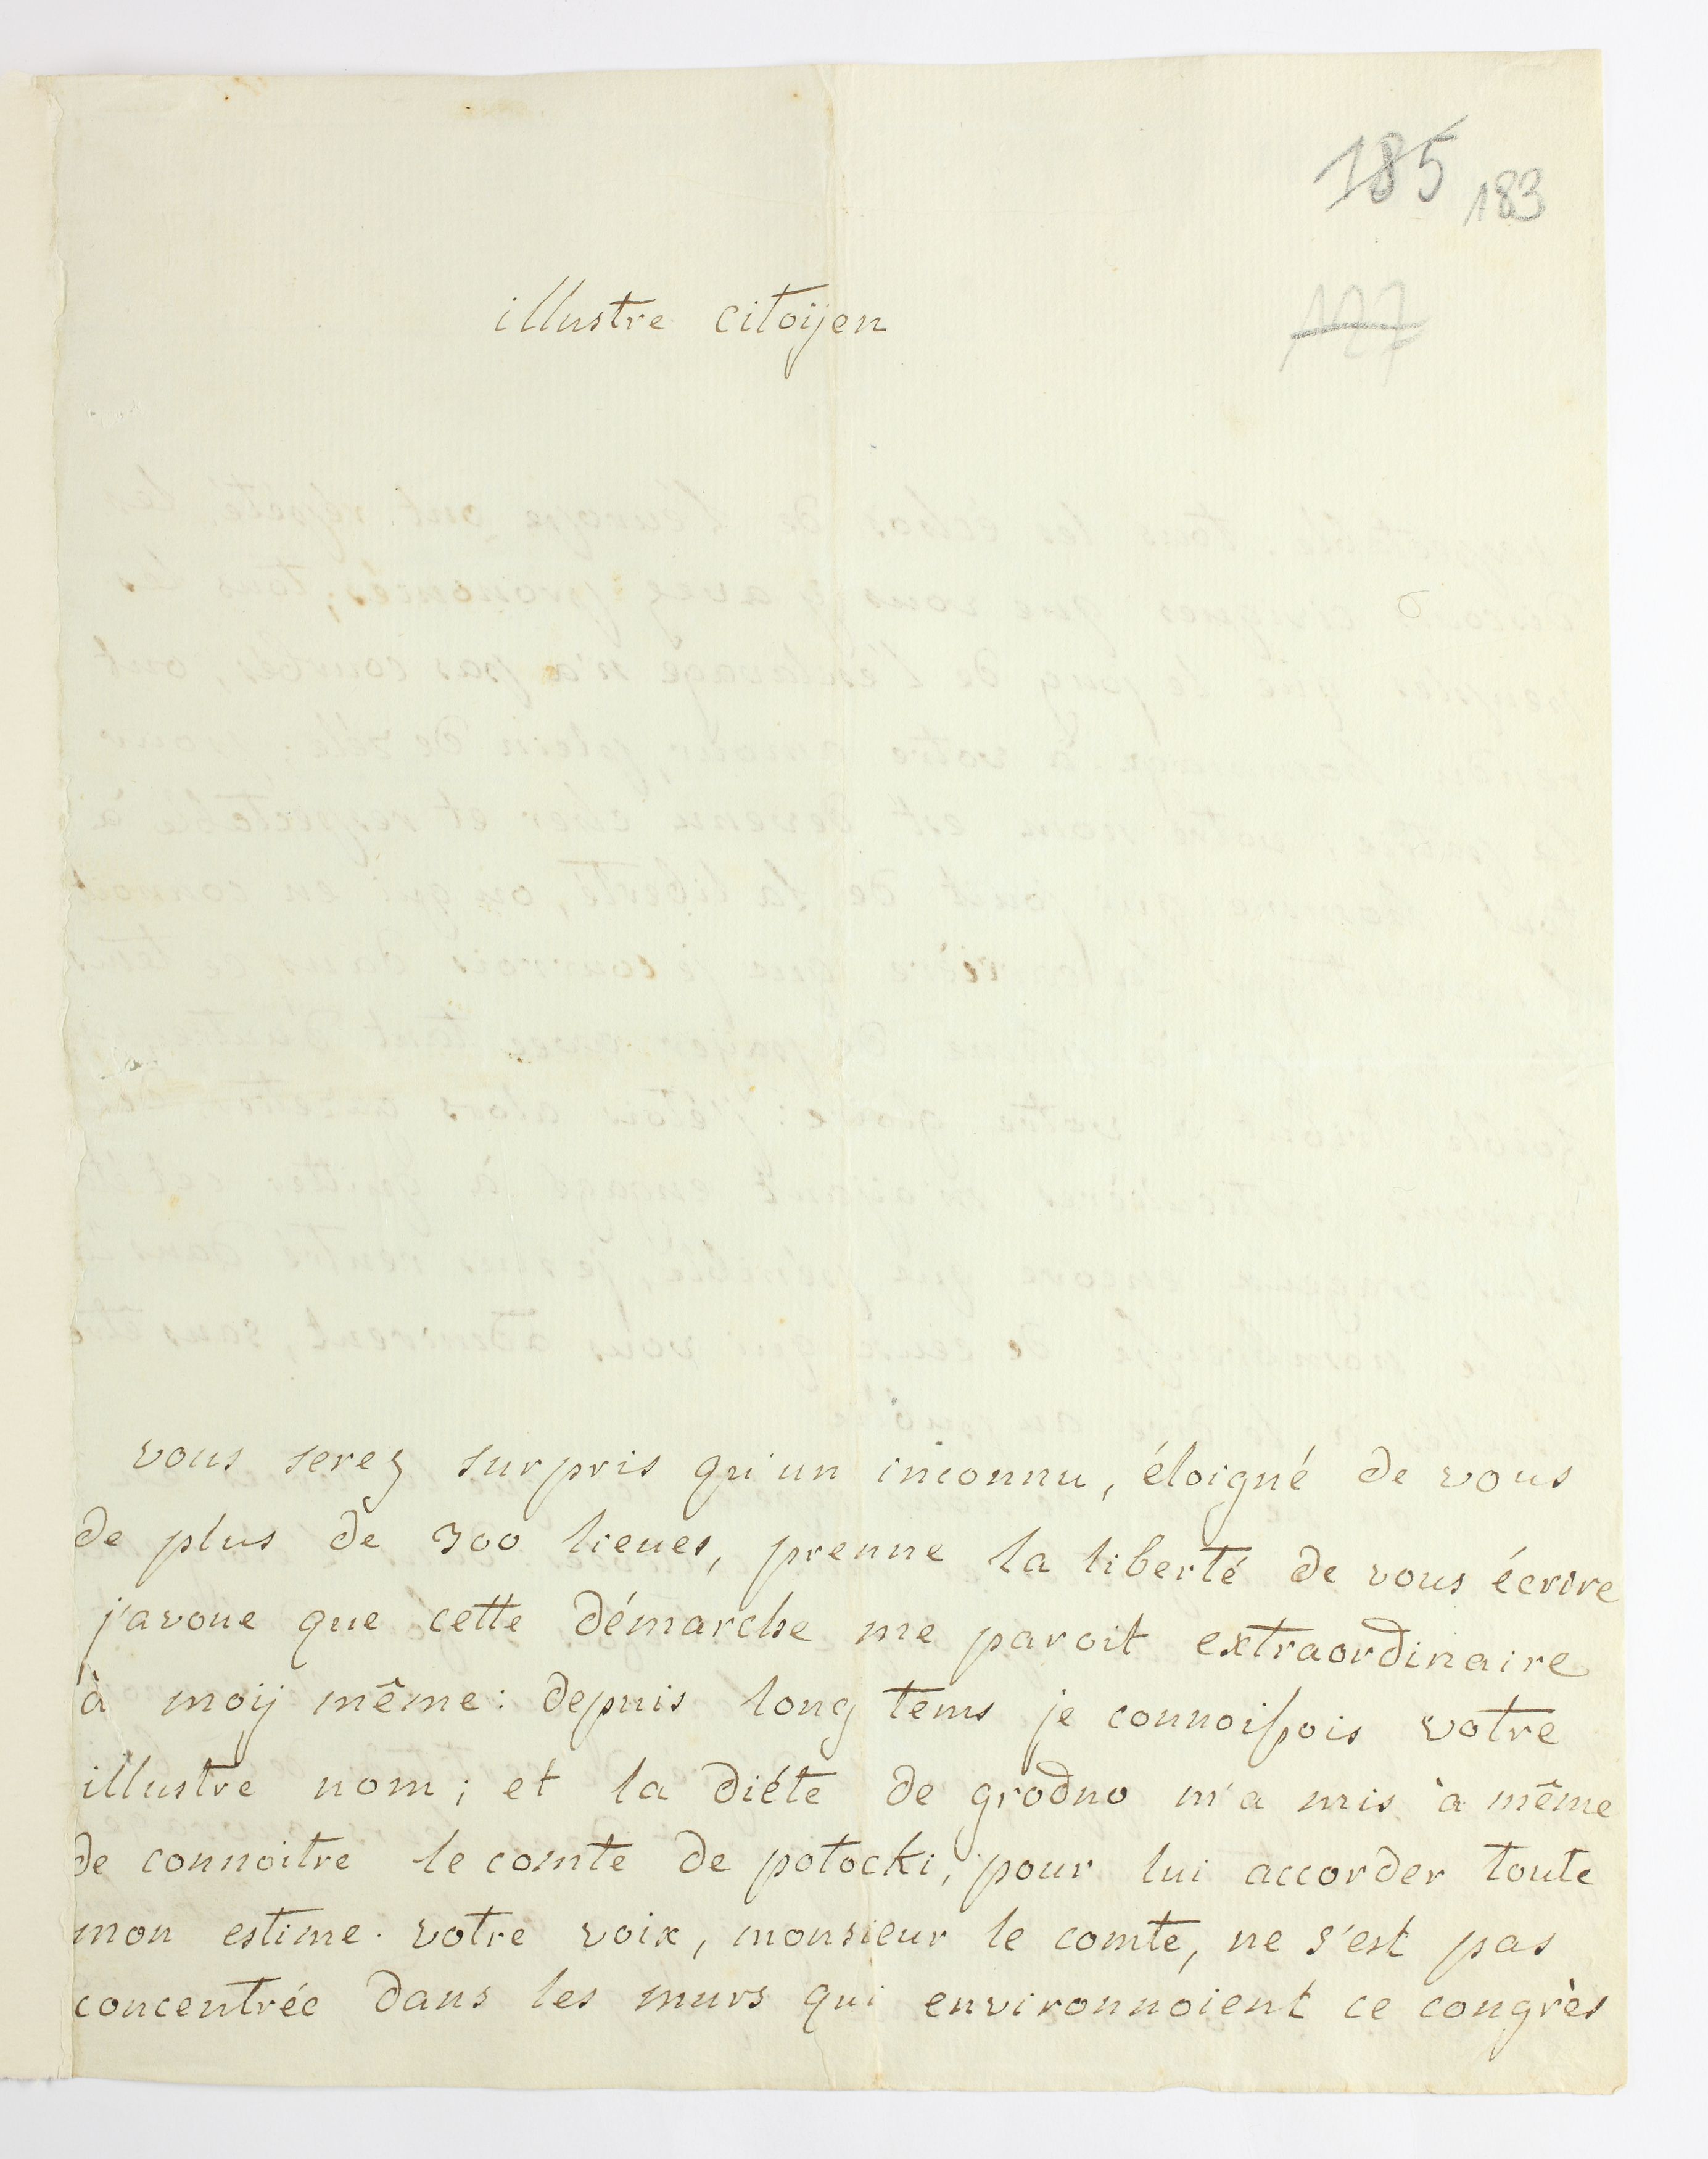 185 183
illustre citoijen
vous serez surpris qu'un inconnu, éloigné de vous
de plus de 300 lieues, prenne la liberté de vous écrire
j'avoue que cette démarche me paroit extraordinaire
à moij même: depuis long tems je connoissois votre
illustre nom; et la diéte de grodno m'a mis à même
de connoitre le comte de potocki, pour lui accorder toute
mon estime. votre voix, monsieur le comte, ne s'est pas
concentrée dans les murs qui environnoient ce congrès